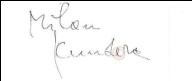 Milan
Kundera